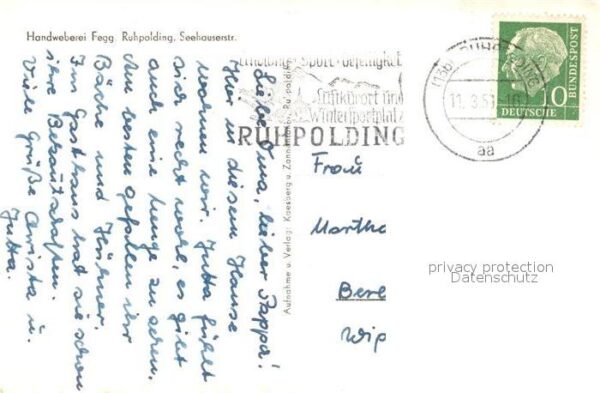 Handweberei Fegg. Ruhpolding, Seehauserstr.
Liebe Oma, lieber Pappa!
Hier in diesem Hause
wohnen wir. Jutta fühlt
sich recht wohl, es gibt
auch eine Menge zu sehen.
Am besten gefallen ihr
Bäche und Hühner.
Im Gasthaus hat sie schon
ihre Bekanntschaften.
Viele Grüße Christa u.
Jutta.
Aufnahme u. Verlag: Kaesberg u. Zannantonio, Ruhpolding
Erholung · Sport · Geselligkeit
Luftkurort und
Wintersportplatz
RUHPOLDING
11.3.5
aa
10
DEUTSCHE
BUNDESPOST
Frau
Martha
Bere
Wip
privacy protection
Datenschutz